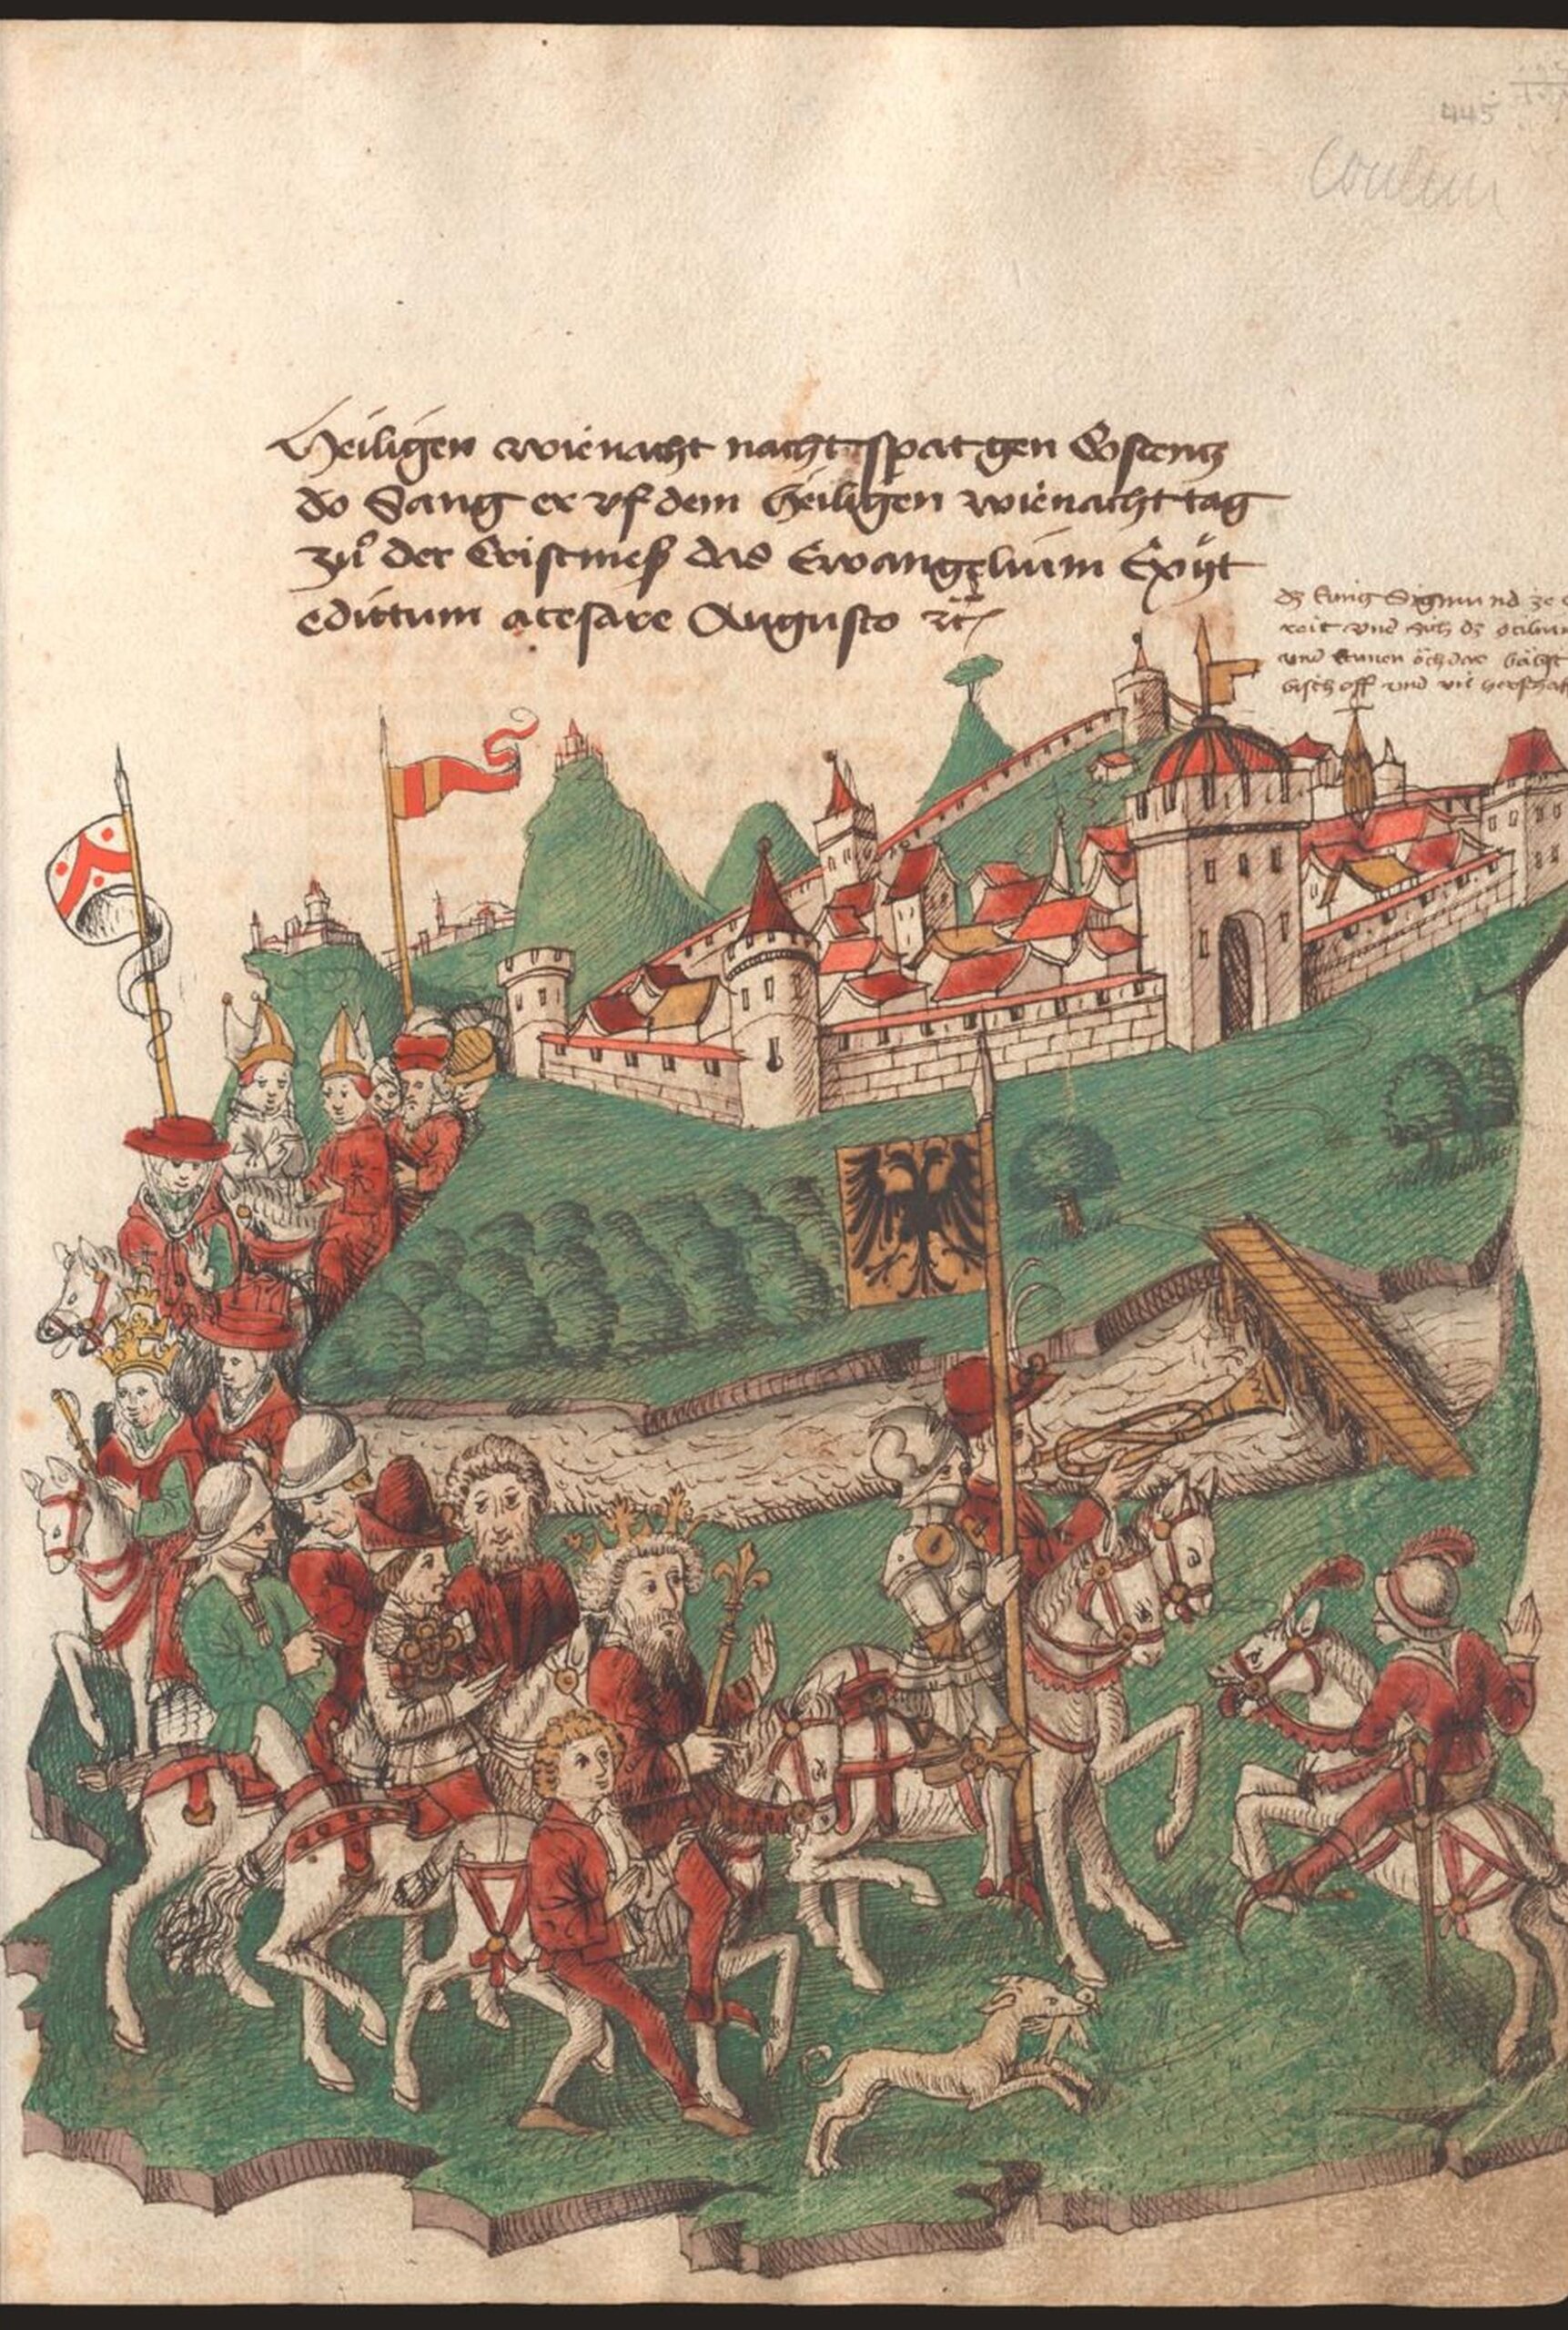 445
Heiligen wienacht nacht spat gen Costentz
do Sang er vf dem Heiligen wienacht tag
zuͦ der Cristmeß das Ewangelium Exijt
edittum a cesare Augusto ꝛc
dz kung Sigmund ze
reit vnd sich dz
vnd kamen och der baͤbst
bischoff vnd vil herschaf